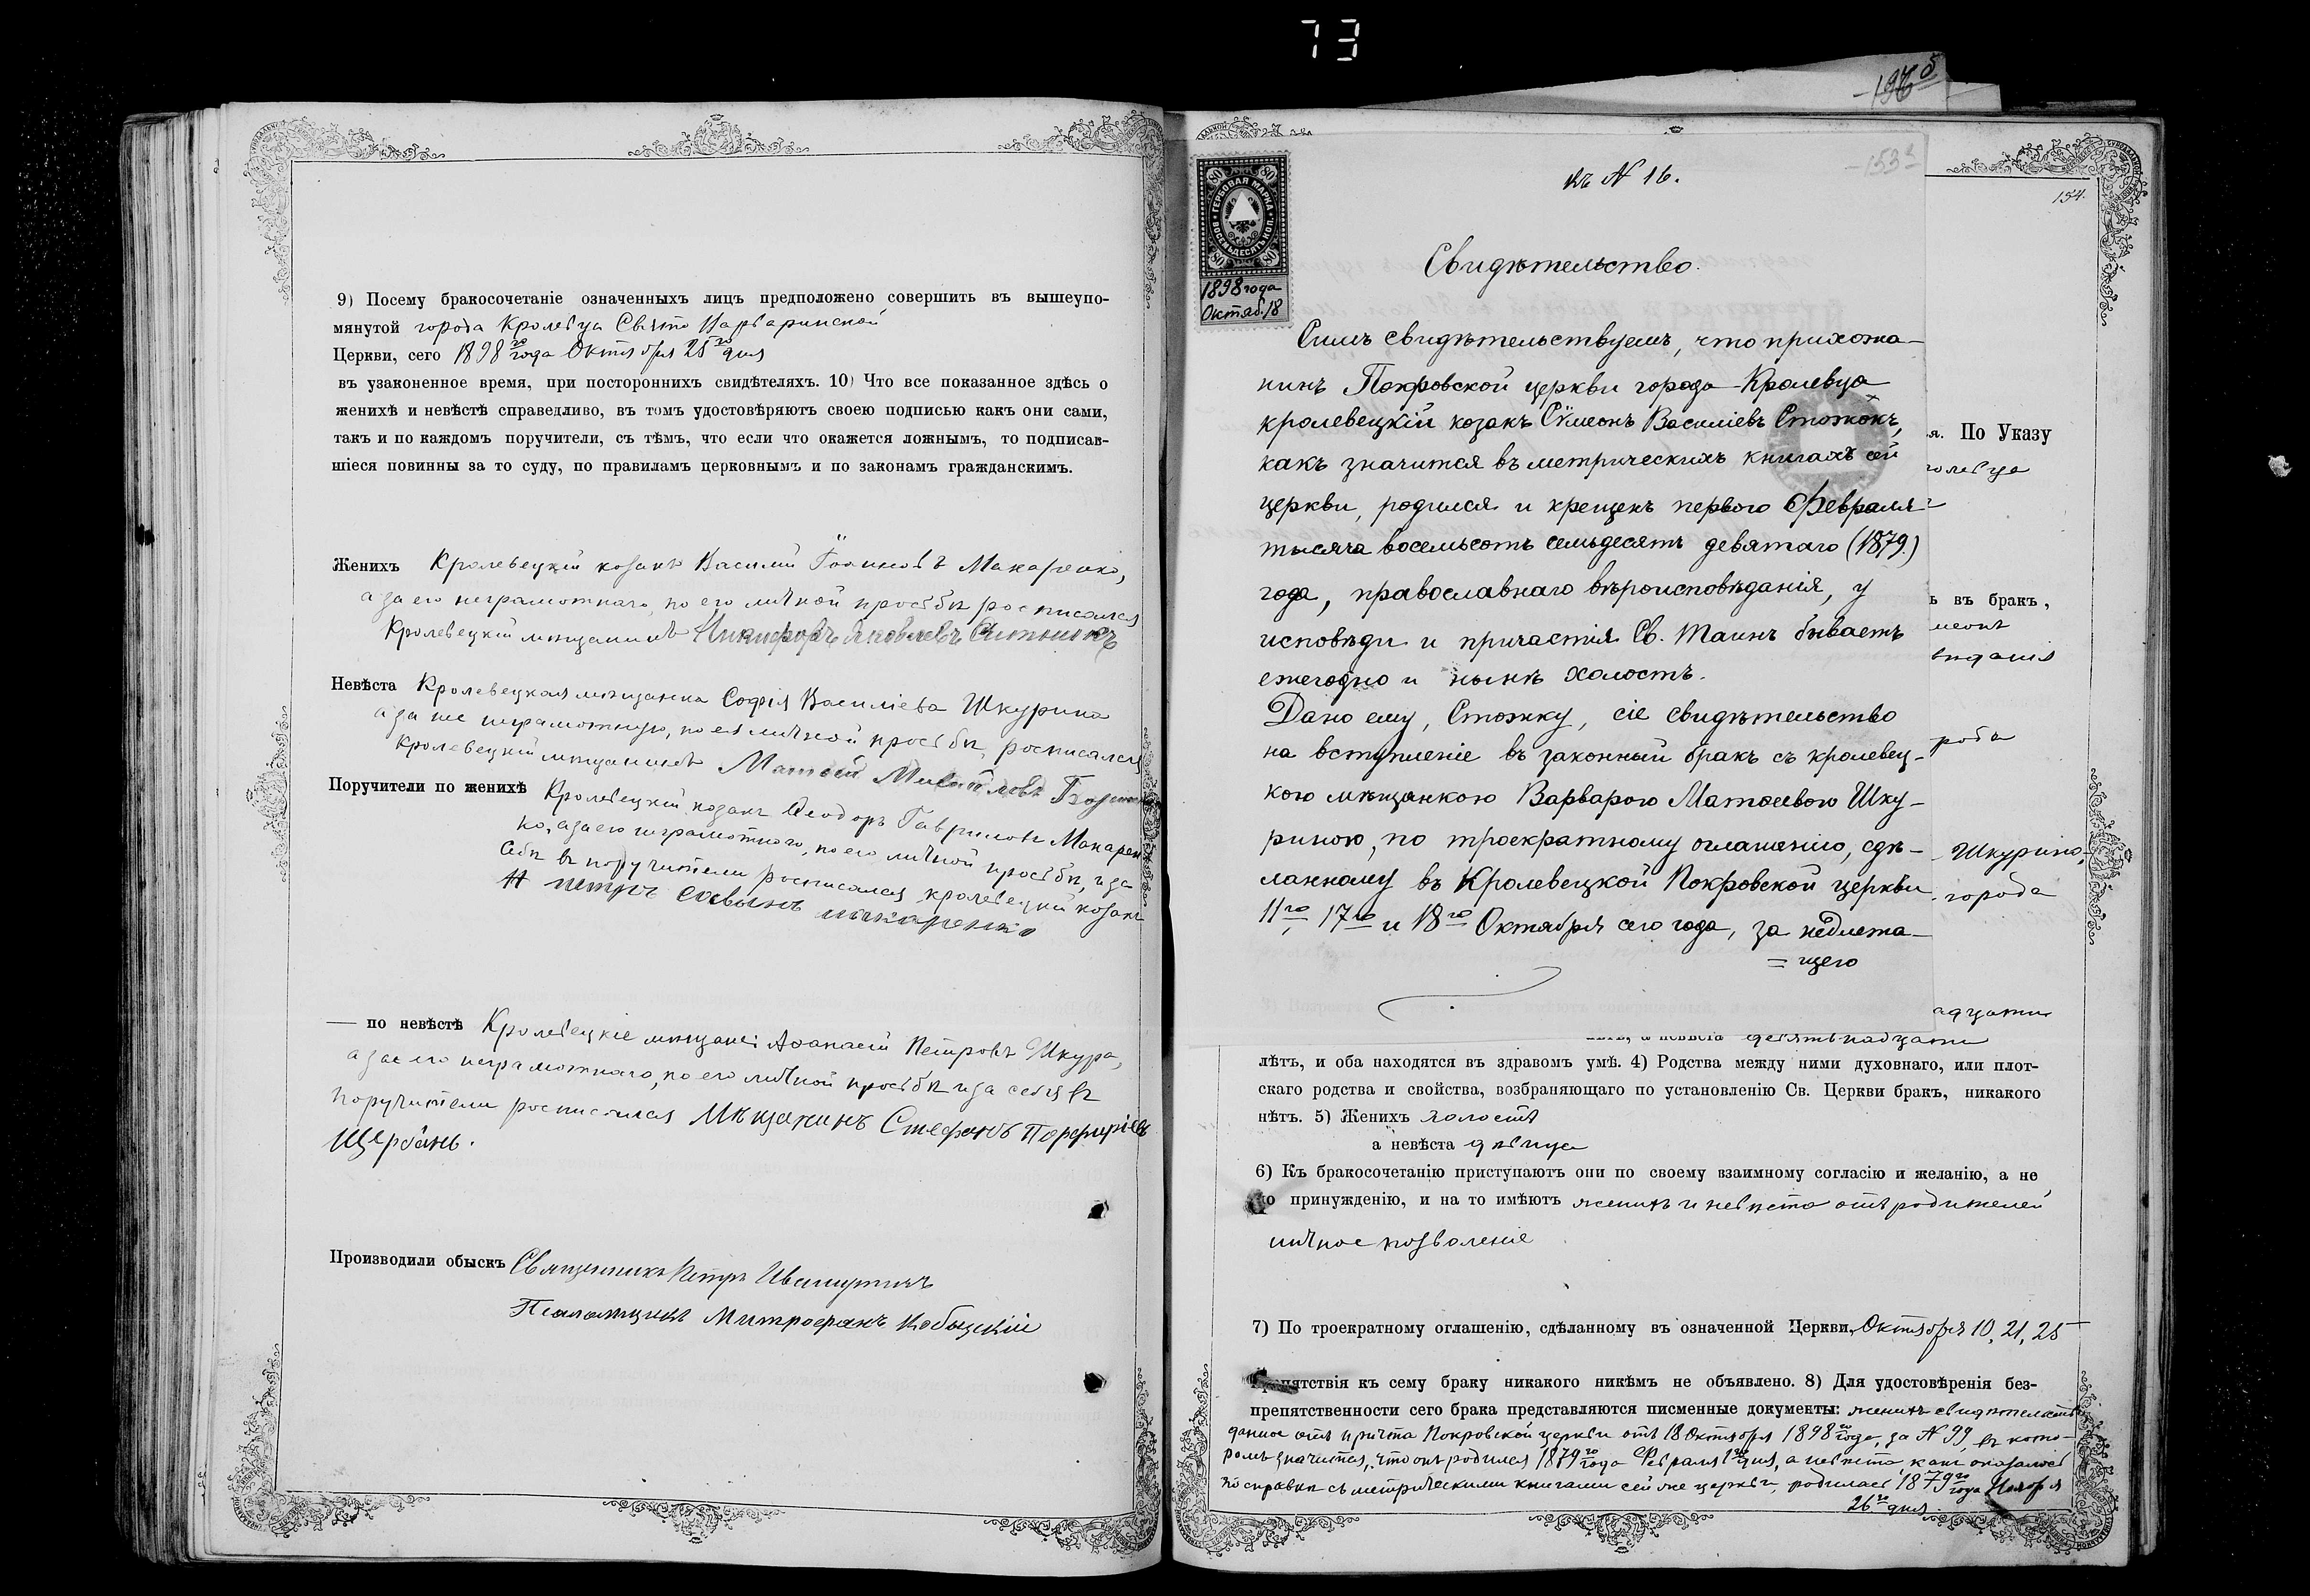 73
9) Посему бракосочетаніе означенныхъ лицъ предположено совершить въ вышеупо-
мянутой города Кролевца Свято Варваринской
Церкви, сего 1898го года Октября 25го дня
въ узаконенное время, при постороннихъ свидѣтеляхъ. 10) Что все показанное здѣсь о
женихѣ и невѣстѣ справедливо, въ томъ удостовѣряютъ своею подписью какъ они сами,
такъ и по каждомъ поручители, съ тѣмъ, что если что окажется ложнымъ, то подписав-
шіеся повинны за то суду, по правиламъ церковнымъ и по законамъ гражданскимъ.
Женихъ Кролевецкій козакъ Василій Іоанновъ Макаренко,
а за его неграмотнаго, по его личной просьбѣ росписался
Кролевецкій мѣщанинъ Никифоръ Яковлевъ
Невѣста Кролевецкая мѣщанка Софія Василіева Шкурина
а за нее неграмотную, по ея личной просьбѣ, росписался
Кролевецкій мѣщанинъ
Поручители по женихѣ Кролевецкій козакъ Ѳеодоръ Гавриловъ Макарен
ко, а за его неграмотнаго, по его личной просьбѣ, и за
себя въ поручители росписался кролевецкій козакъ
петръ савынъ макаренко
— по невѣстѣ Кролевецкіе мѣщане: Аѳанасій Петровъ Шкура,
а за его неграмотнаго, по его личной просьбѣ и за себя въ
поручители росписался Мѣщанинъ Стефанъ Порфиріевъ
Щербань.
Производили обыскъ Священникъ Петръ
Псаломщикъ Митрофанъ
154.
153
къ N 16.
80 80
ГЕРБОВАЯ МАРКА
ВОСЕМЬДЕСЯТЪ КОП.
80 80
1898 года
Октяб. 18
Свидѣтельство.
Симъ свидѣтельствуемъ, что прихожа-
нинъ Покровской церкви города Кролевца
кролевецкій козакъ Сѵмеонъ Василіевъ Стожокъ,
какъ значится въ метрическихъ книгахъ сей
церкви, родился и крещенъ перваго Февраля
тысяча восемьсотъ семьдесятъ девятаго (1879)
года, православнаго вѣроисповѣданія, у
исповѣди и причастія Св. Таинъ бываетъ
ежегодно и нынѣ холостъ.
Дано ему, Стожку, сіе свидѣтельство
на вступленіе въ законный бракъ съ кролевец-
кою мѣщанкою Варварою Матѳеевою Шку-
риною, по троекратному оглашенію, сдѣ-
ланному въ Кролевецкой Покровской церкви
11го, 17го и 18го Октября сего года, за недлежа-
=щего
я. По Указу
ролевца
ь въ бракъ,
меонъ
вѣданія
рода
Шкурина,
города
адцати
невѣста девятьнадцати
лѣтъ, и оба находятся въ здравомъ умѣ. 4) Родства между ними духовнаго, или плот-
скаго родства и свойства, возбраняющаго по установленію Св. Церкви бракъ, никакого
нѣтъ. 5) Женихъ холостъ
а невѣста дѣвица
6) Къ бракосочетанію приступаютъ они по своему взаимному согласію и желанію, а не
по принужденію, и на то имѣютъ женихъ и невѣста отъ родителей
личное позволеніе
7) По троекратному оглашенію, сдѣланному въ означенной Церкви, Октября 10, 21, 25
препятствія къ сему браку никакого никѣмъ не объявлено. 8) Для удостовѣренія без-
препятственности сего брака представляются писменные документы: женихъ свидѣтельство
данное отъ причта Покровской церкви отъ 18 Октября 1898го года, за N 99, въ кото-
ромъ значится, что онъ родился 1879го года Февраля 1го дня, а невѣста, какъ оказалось
по справкѣ съ метрическими книгами сей же церкви, родилась 1879го года Ноября
26го дня.